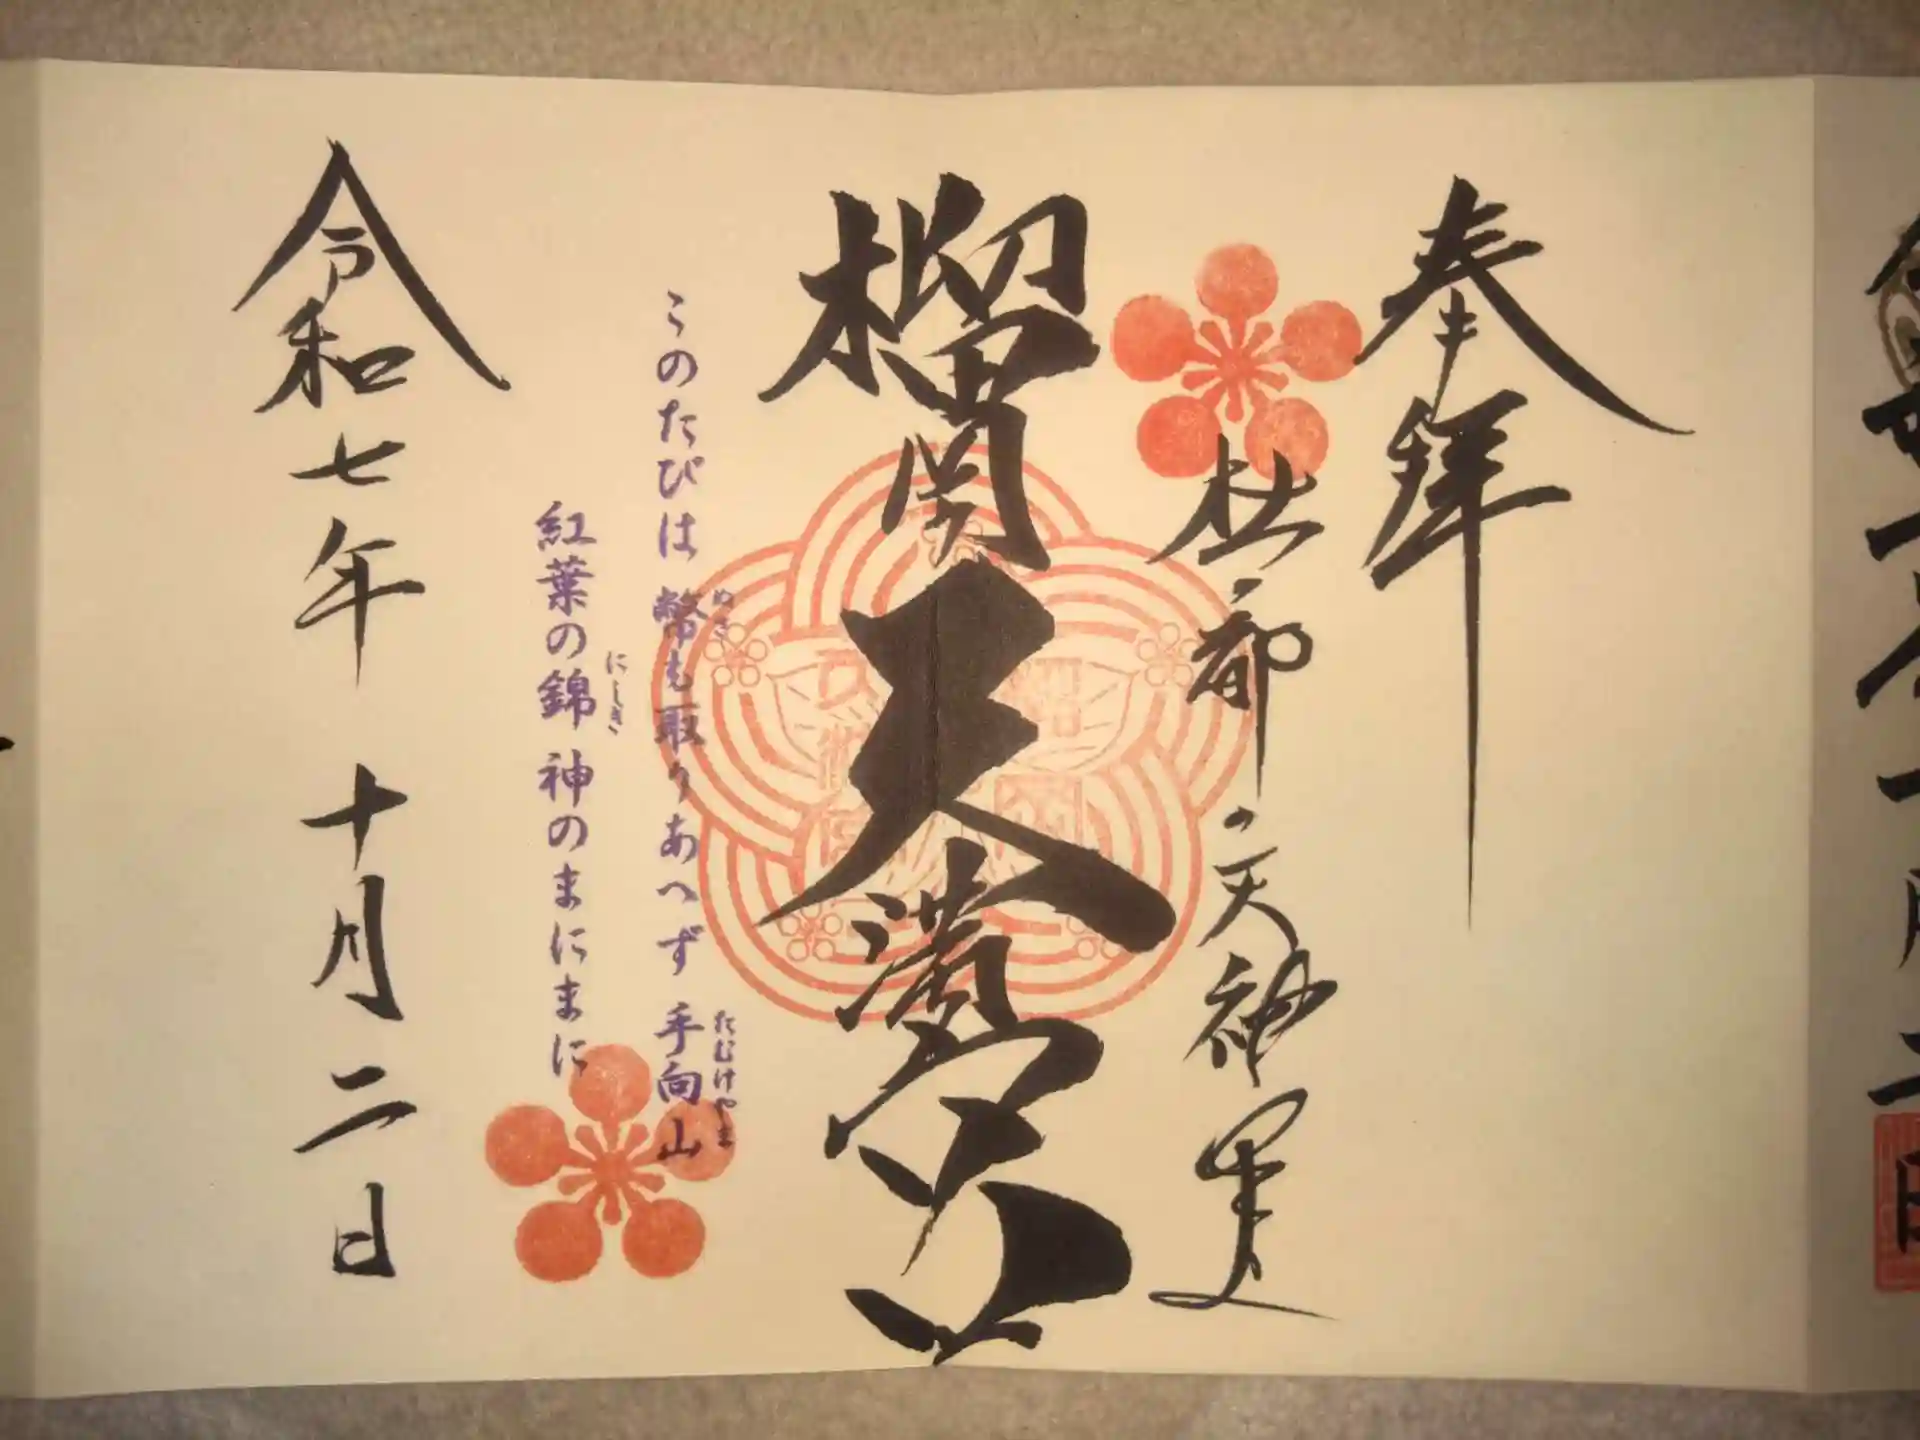 奉拝
杜・都・天神里
榴岡天満宮
このたびは 幣も取りあへず 手向山
ぬさ
たむけやま
紅葉の錦 神のまにまに
にしき
令和七年 十月二日